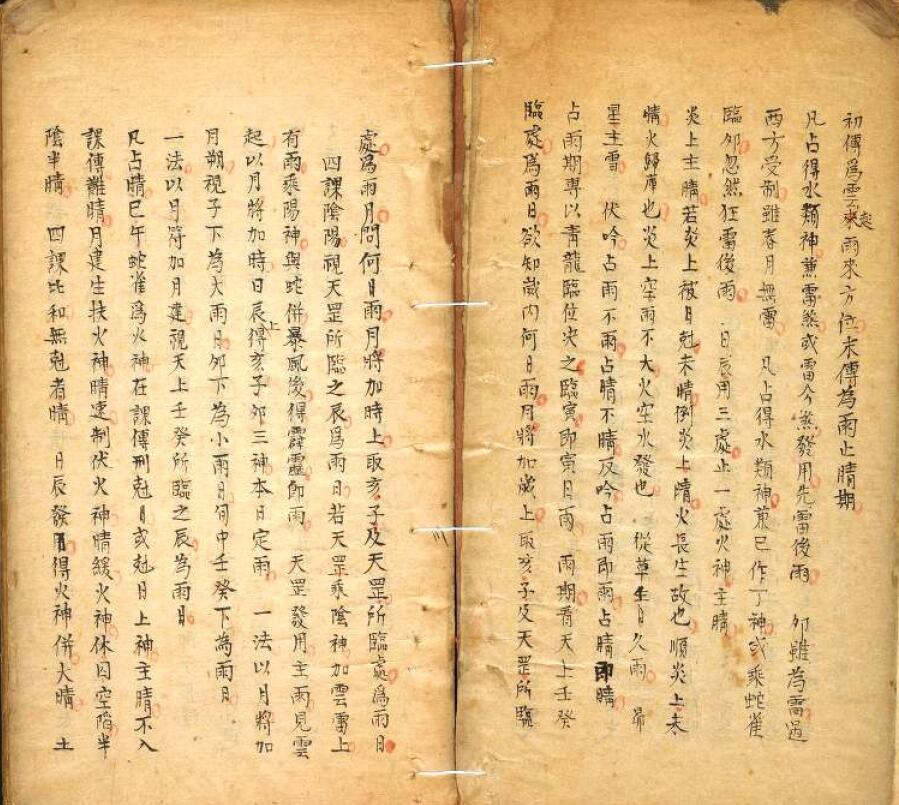 初傳爲雲來雨來方位末傳為雨止晴期
凡占得水類神兼雷煞或雷令煞發用先雷後雨　夘雖為雷過
西方受制雖春月無雷　凡占得水類神兼巳作丁神或乘蛇雀
臨夘忽然狂雷後雨　日辰用三處止一處火神主晴
炎上主晴若炎上被日尅未晴例炎上晴火長生故也順炎上未
晴火歸庫也炎上空雨不大火空水發也　從革生日久雨　昴
星主雪　伏吟占雨不雨占晴不晴反吟占雨即雨占晴即晴
占雨期專以青龍臨位决之臨寅即寅日雨　雨期看天上壬癸
臨處爲雨日欲知歲内何日雨月將加歲上取亥子及天罡所臨
處爲雨月問何日雨月將加時上取亥子及天罡所臨處爲雨日
四課陰陽視天罡所臨之辰爲雨日若天罡乘陰神加雲雷上
有雨乘陽神與蛇併暴風後得霹靂即雨　天罡發用主雨見雲
起以月將加時日辰上得亥子夘三神本日定雨　一法以月將加
月朔視子下为大雨日夘下為小雨日旬中壬癸下為雨日
一法以月符加月建視天上壬癸所臨之辰為雨日
凡占晴巳午蛇雀爲火神在課傳刑尅日或尅日上神主晴不入
課傳難晴月建生扶火神晴速制伏火神晴緩火神休囚空陷半
陰半晴　四課比和無尅者晴　日辰發用得火神併大晴　土